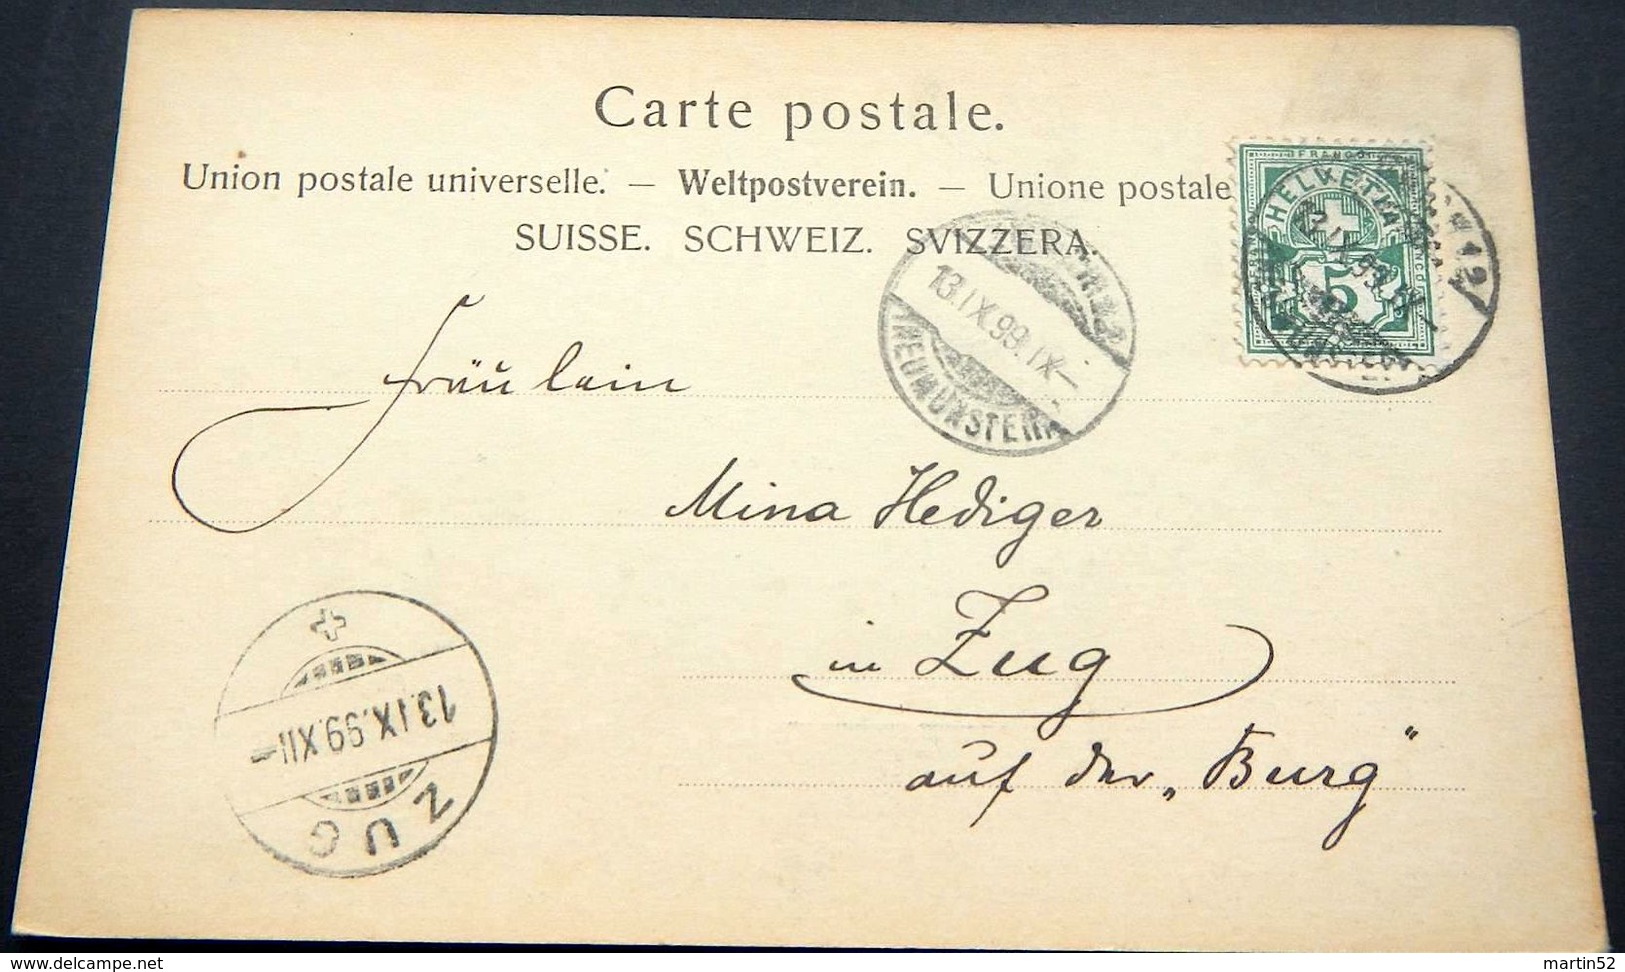 Carte postale.
Union postale universelle. — Weltpostverein. — Unione postale
SUISSE. SCHWEIZ. SVIZZERA.
FRANCO
HELVETIA
5
13.IX.99.IX—
NEUMÜNSTER
Fräulein
Mina Hediger
in Zug
auf der „Burg"
13.IX.99.XII—
ZUG
www.delcampe.net
martin52